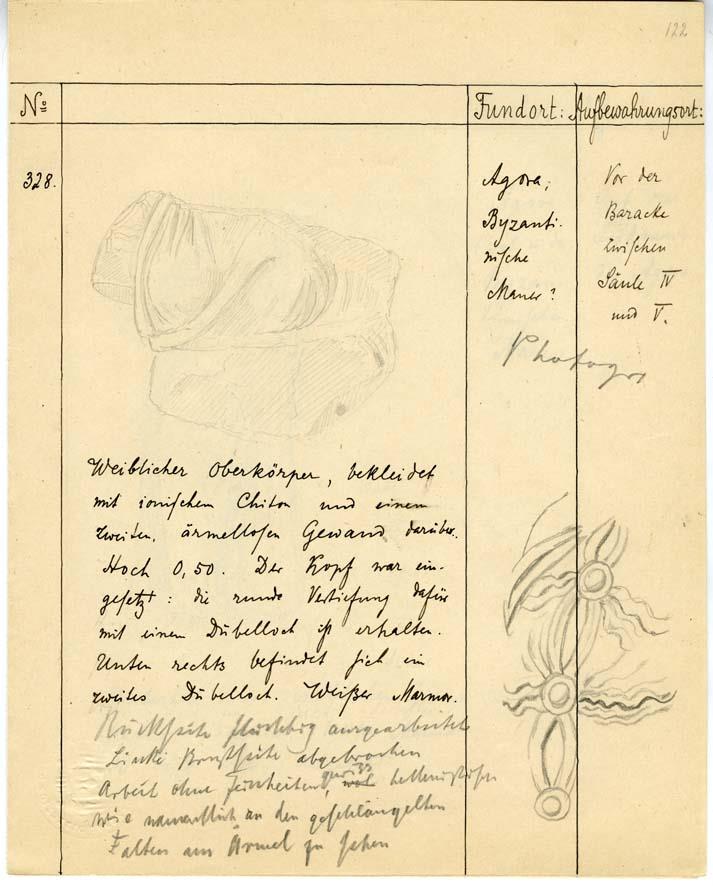 122
No
Fundort:
Aufbewahrungsort:
328.
Agora;
Byzanti-
nische
Mauer?
Vor der
Baracke
zwischen
Säule IV
und V.
Photogr.
Weiblicher Oberkörper, bekleidet
mit ionischem Chiton und einem
zweiten, ärmellosen Gewand darüber.
Hoch 0,50. Der Kopf war ein-
gesetzt: die runde Vertiefung dafür
mit einem Dübelloch ist erhalten.
Unten rechts befindet sich ein
zweites Dübelloch. Weißer Marmor.
Rückseite flüchtig ausgearbeitet
Linke Brustseite abgebrochen
Arbeit ohne Feinheiten, gewiss hellenistisch
wie namentlich an den geschlängelten
Falten am Ärmel zu sehen